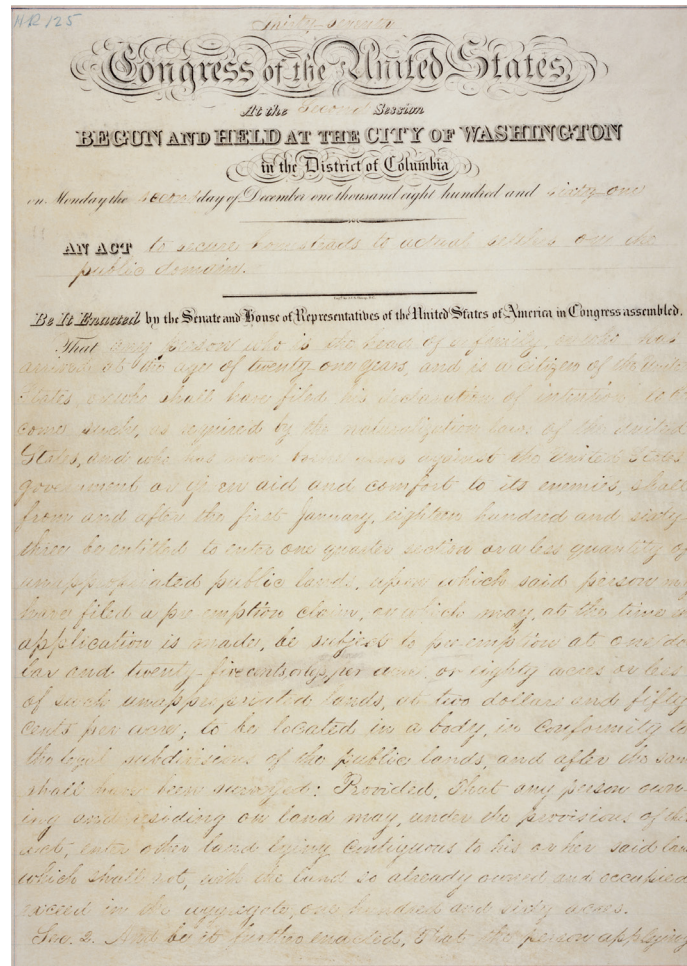 HR 125
Thirty-seventh
Congress of the United States,
At the Second Session
BEGUN AND HELD AT THE CITY OF WASHINGTON
in the District of Columbia
on Monday the second day of December one thousand eight hundred and sixty-one
AN ACT to secure homesteads to actual settlers on the
public domain.
Be It Enacted by the Senate and House of Representatives of the United States of America in Congress assembled.
That any person who is the head of a family, or who has
arrived at the age of twenty-one years, and is a citizen of the United
States, or who shall have filed his declaration of intention to be
come such, as required by the naturalization laws of the United
States, and who has never borne arms against the United States
government or given aid and comfort to its enemies, shall
from and after the first January, eighteen hundred and sixty
three be entitled to enter one quarter section or a less quantity of
unappropriated public lands, upon which said person may
have filed a preemption claim, or which may, at the time
application is made, be subject to preemption at one dol
lar and twenty-five cents, or less, per acre; or eighty acres or less
of such unappropriated lands, at two dollars and fifty
cents per acre; to be located in a body, in conformity to
the legal subdivisions of the public lands, and after the same
shall have been surveyed: Provided, That any person own
ing and residing on land may, under the provisions of this
act, enter other land lying contiguous to his or her said land
which shall not, with the land so already owned and occupied
exceed in the aggregate one hundred and sixty acres.
Sec. 2. And be it further enacted, That the person applying